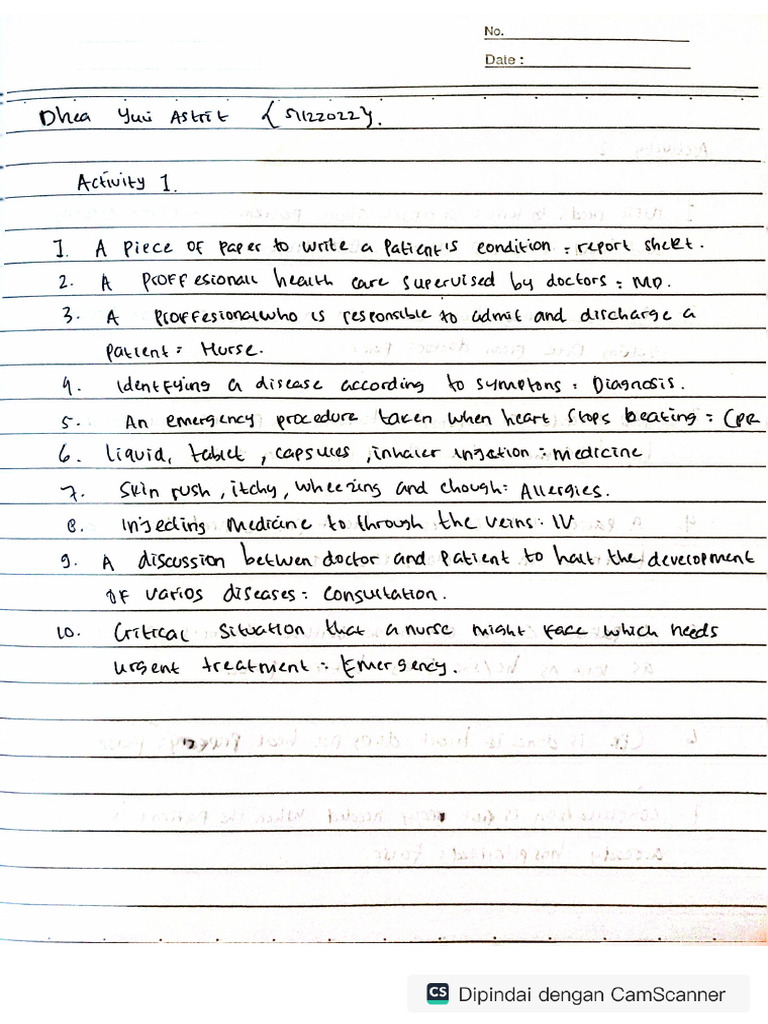 No.
Date :
Dhea Yuni Astrit {51122022}.
Activity 1.
1. A piece of paper to write a patient's condition = report sheet.
2. A proffesionall health care supervised by doctors = MD.
3. A proffesionalwho is responsible to admit and discharge a
patient = Nurse.
4. Identfying a disease according to symptons = Diagnosis.
5. An emergency procedure taken when heart stops beating = CPR
6. liquid, tablet, capsules, inhaler injstion = medicine
7. Skin rush, itchy, wheezing and chough = Allergies.
8. Injecting medicine to through the veins = IV
9. A discussion betwen doctor and patient to halt the development
of varios diseases = consultation.
10. Critical situation that a nurse might face which needs
urgent treatment = Emergency.
CS Dipindai dengan CamScanner